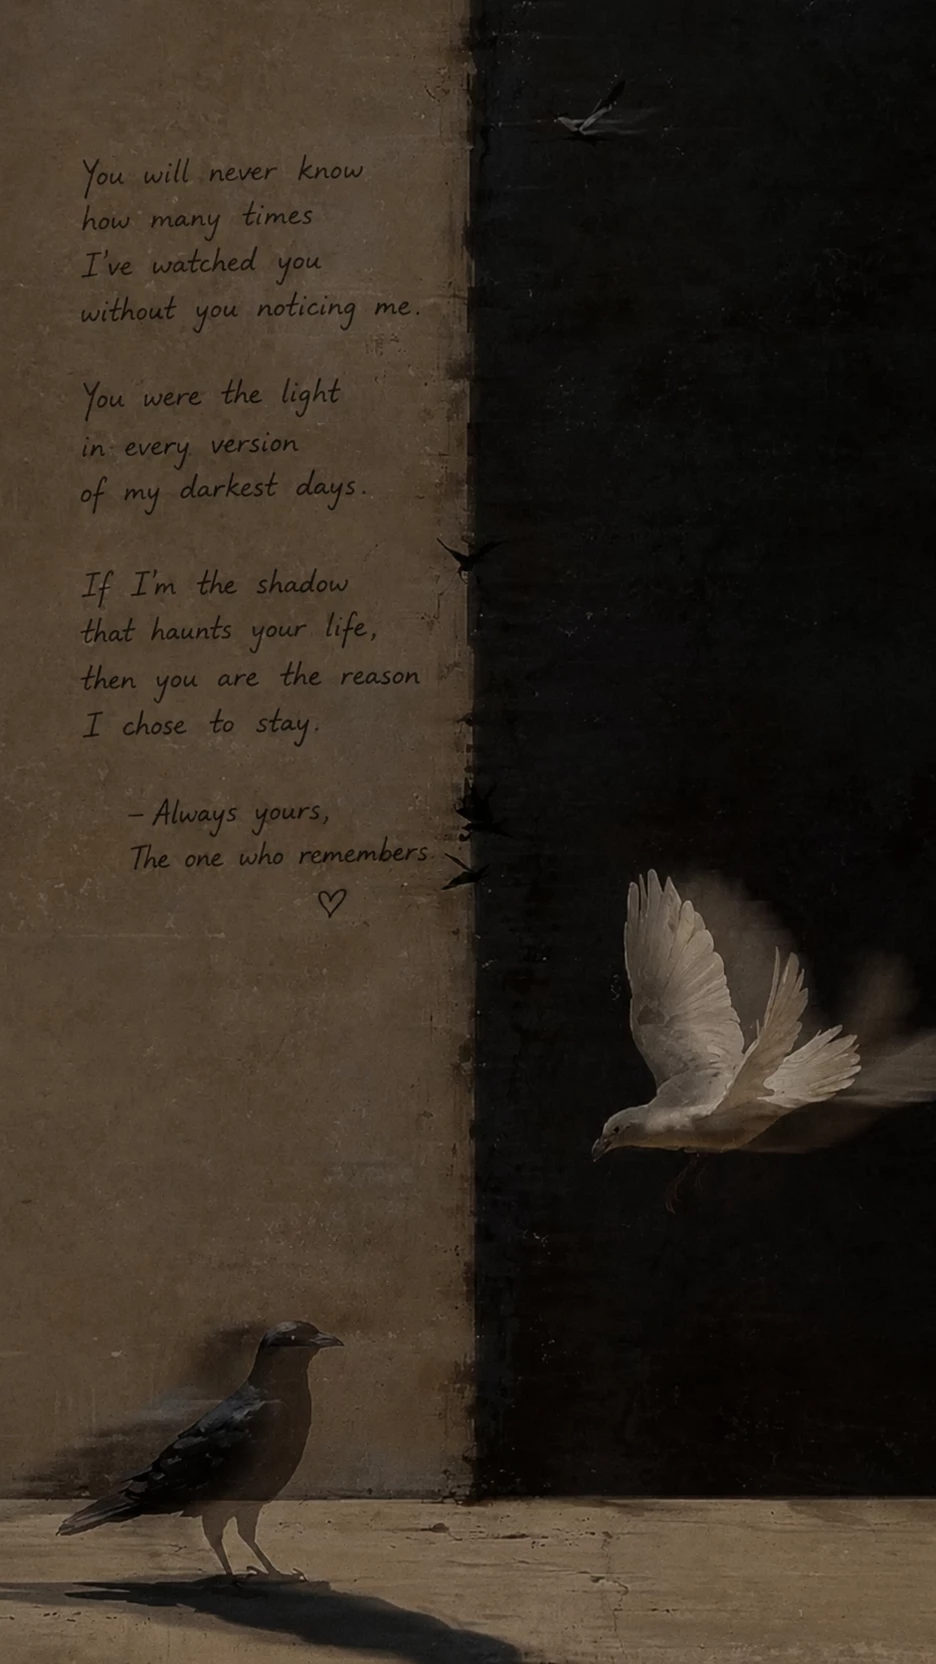 You will never know
how many times
I've watched you
without you noticing me.
You were the light
in every version
of my darkest days.
If I'm the shadow
that haunts your life,
then you are the reason
I chose to stay.
– Always yours,
The one who remembers.
♡